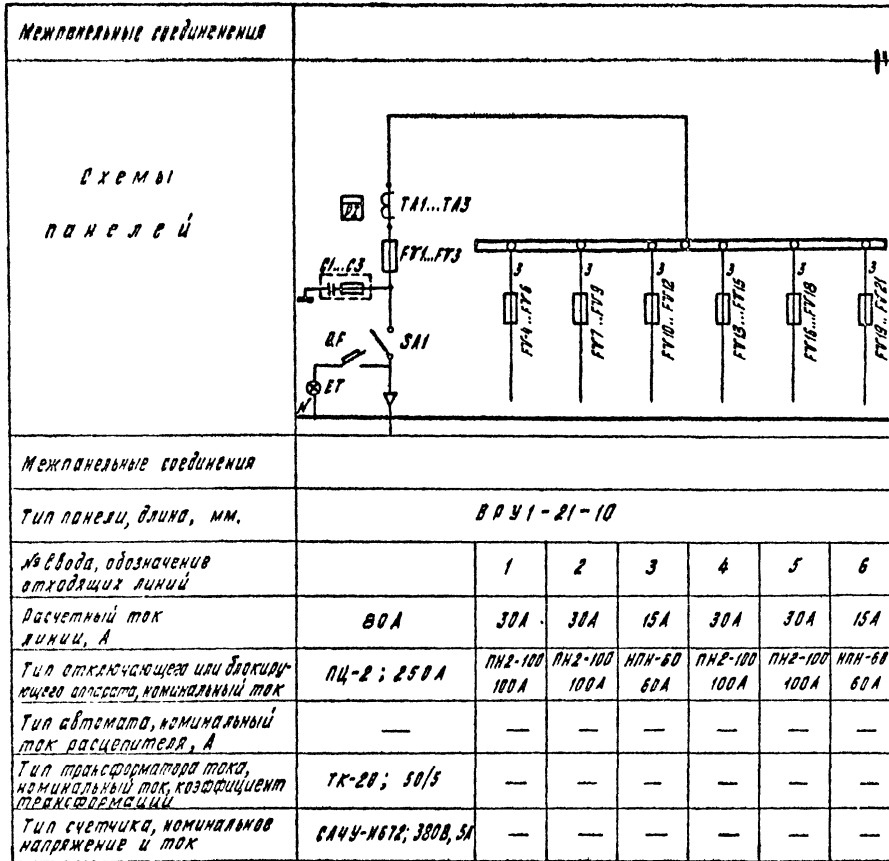 Межпанельные соединения
Схемы
панелей
PI
TA1...TA3
FV1...FV3
C1...C3
QF
SA1
ET
N
3
3
3
3
3
3
FV4...FV6
FV7...FV9
FV10...FV12
FV13...FV15
FV16...FV18
FV19...FV21
Межпанельные соединения
Тип панели, длина, мм.
ВРУ1-21-10
№ ввода, обозначение
отходящих линий
1 2 3 4 5 6
Расчетный ток
линии, А
80А 30А 30А 15А 30А 30А 15А
Тип отключающего или блокиру-
ющего аппарата, номинальный ток
ПЦ-2; 250А
ПН2-100 ПН2-100 НПН-60 ПН2-100 ПН2-100 НПН-60
100А 100А 60А 100А 100А 60А
Тип автомата, номинальный
ток расцепителя, А
— — — — — — —
Тип трансформатора тока,
номинальный ток, коэффициент
трансформации
ТК-20; 50/5 — — — — — —
Тип счетчика, номинальное
напряжение и ток
СА4У-И672; 380В, 5А — — — — — —